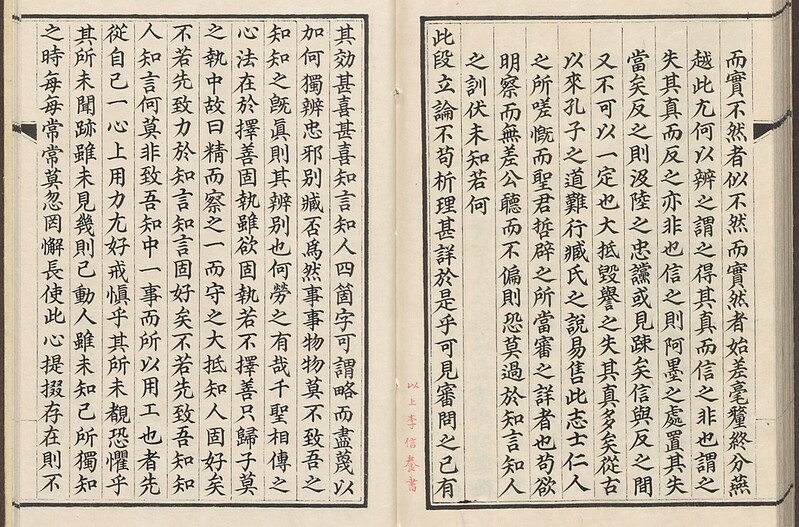 而實不然者似不然而實然者始差毫釐終分燕
越此尤何以辨之謂之得其真而信之非也謂之
失其真而反之亦非也信之則阿墨之處置其失
當矣反之則汲陸之忠讜或見踈矣信與反之間
又不可以一定也大抵毀譽之失其真多矣從古
以來孔子之道難行臧氏之說易售此志士仁人
之所嗟慨而聖君哲辟之所當審之詳者也苟欲
明察而無差公聽而不偏則恐莫過於知言知人
之訓伏未知若何
此段立論不苟析理甚詳於是乎可見審問之已有
以上李信養書
其効甚喜甚喜知言知人四箇字可謂略而盡蔑以
加何獨辨忠邪別臧否爲然事事物物莫不致吾之
知知之旣眞則其辨別也何勞之有哉千聖相傳之
心法在於擇善固執雖欲固執若不擇善只歸子莫
之執中故曰精而察之一而守之大抵知人固好矣
不若先致力於知言知言固好矣不若先致吾知知
人知言何莫非致吾知中一事而所以用工也者先
從自己一心上用力尤好戒愼乎其所未覩恐懼乎
其所未聞跡雖未見幾則已動人雖未知己所獨知
之時每每常常莫忽罔懈長使此心提掇存在則不